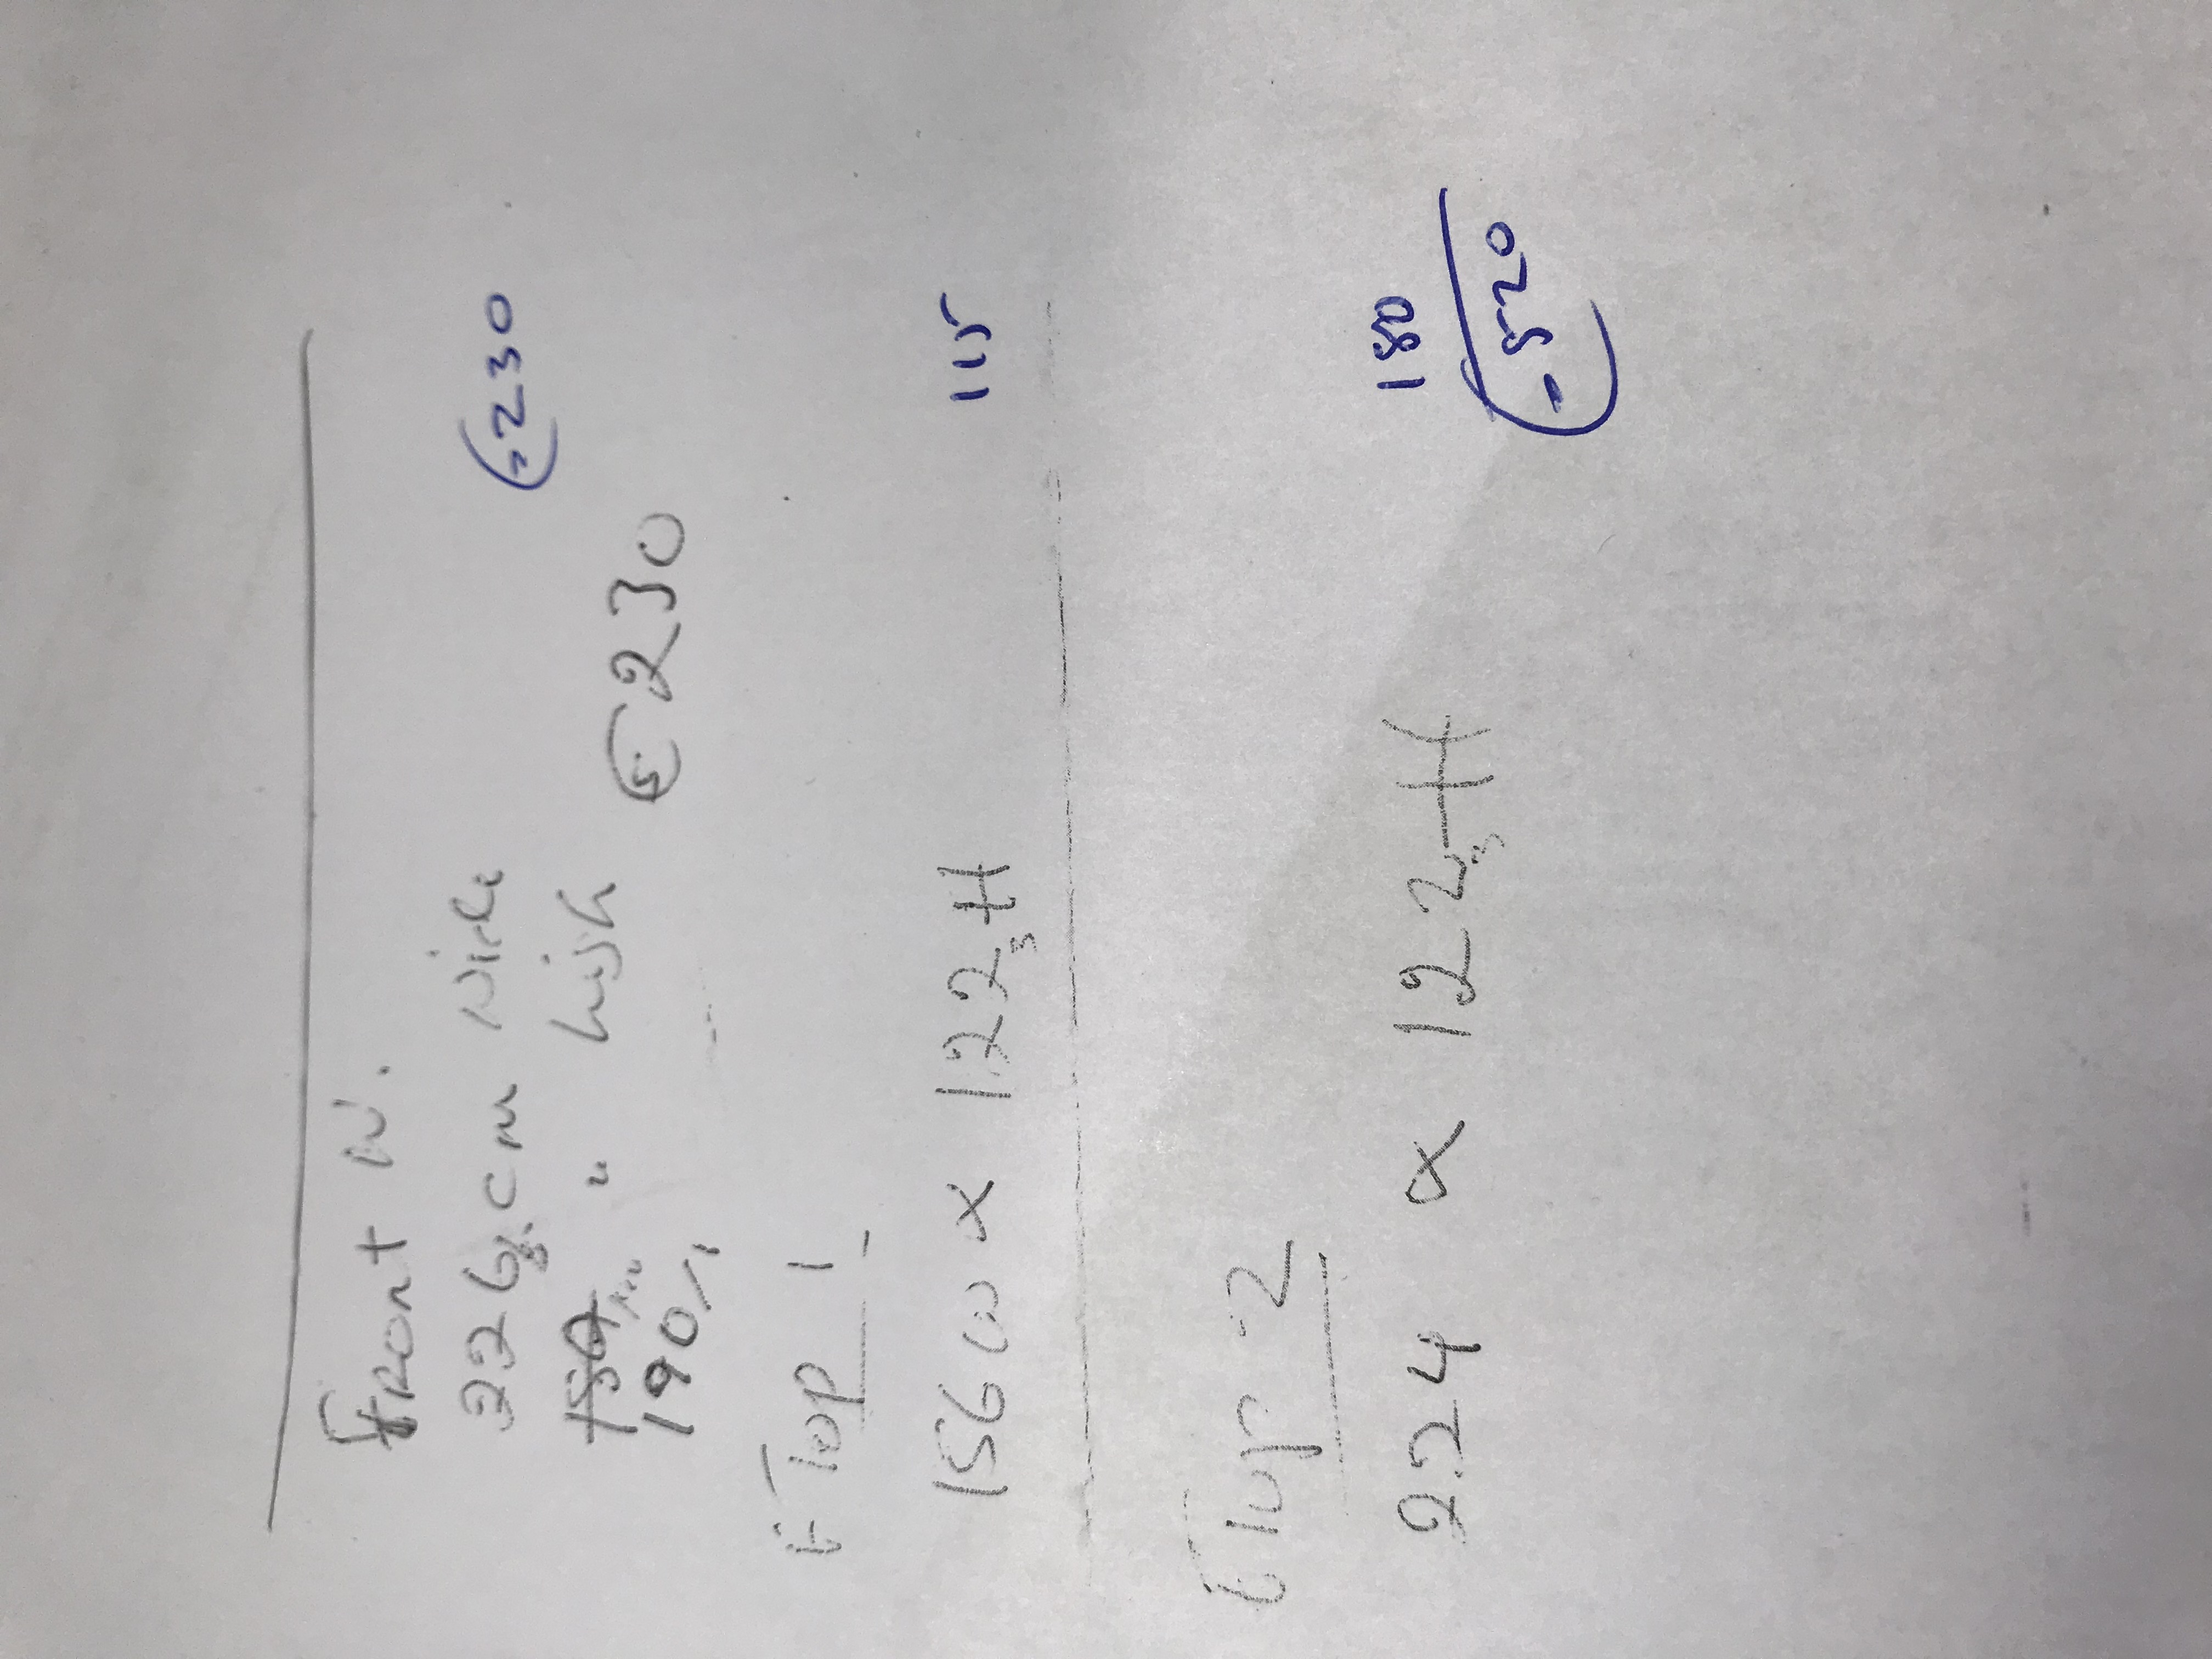 FRont W.
226.5 cm Wide €230
" high
190 €230
F Top 1
156 W x 122.5 H 115
F Top 2
224 x 122.5 H 180
520